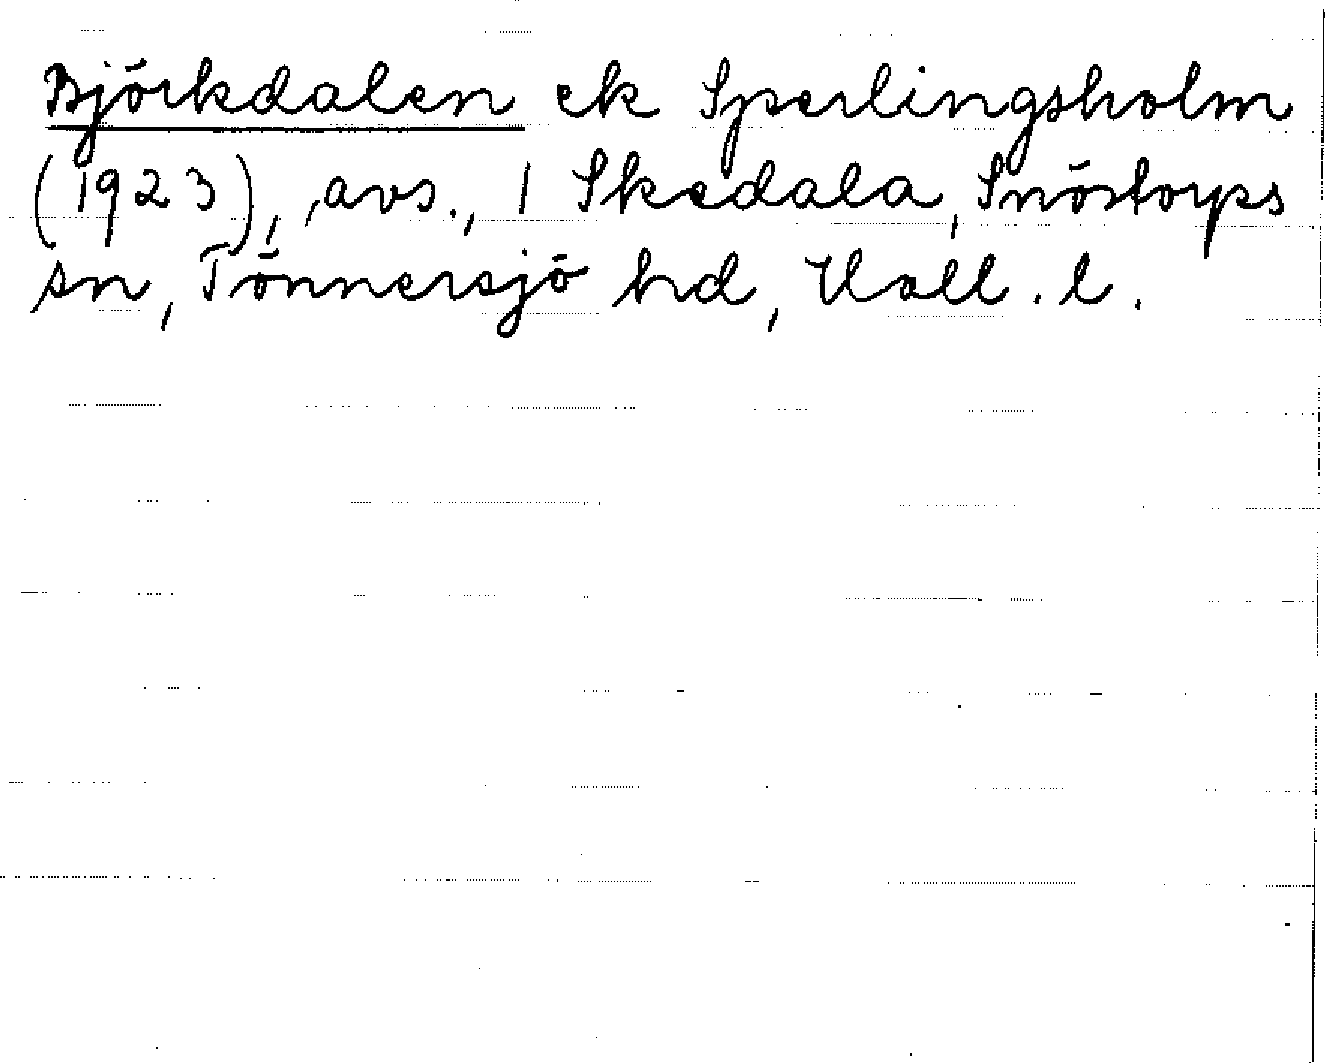 Björkdalen ek Sperlingsholm
(1923), ,avs., 1 Skedala, Snöstorps
sn, Tönnersjö hd, Hall. l.